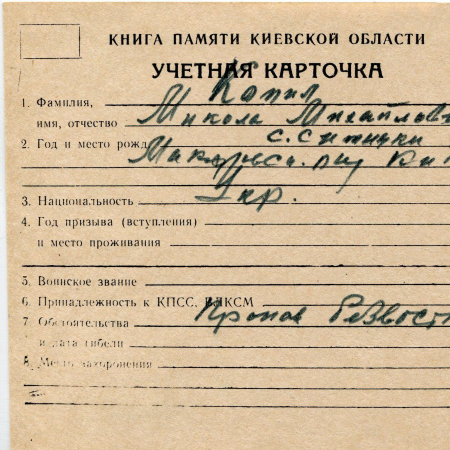 КНИГА ПАМЯТИ КИЕВСКОЙ ОБЛАСТИ
УЧЕТНАЯ КАРТОЧКА
1. Фамилия, Копил
имя, отчество Микола Михайлов
2. Год и место рожд с. Ситняки
Макарівськ.
3. Национальность Укр.
4. Год призыва (вступления)
и место проживания
5. Воинское звание
6. Принадлежность к КПСС, ВЛКСМ
7. Обстоятельства Пропав безвіст
и дата гибели
8. Место захоронения